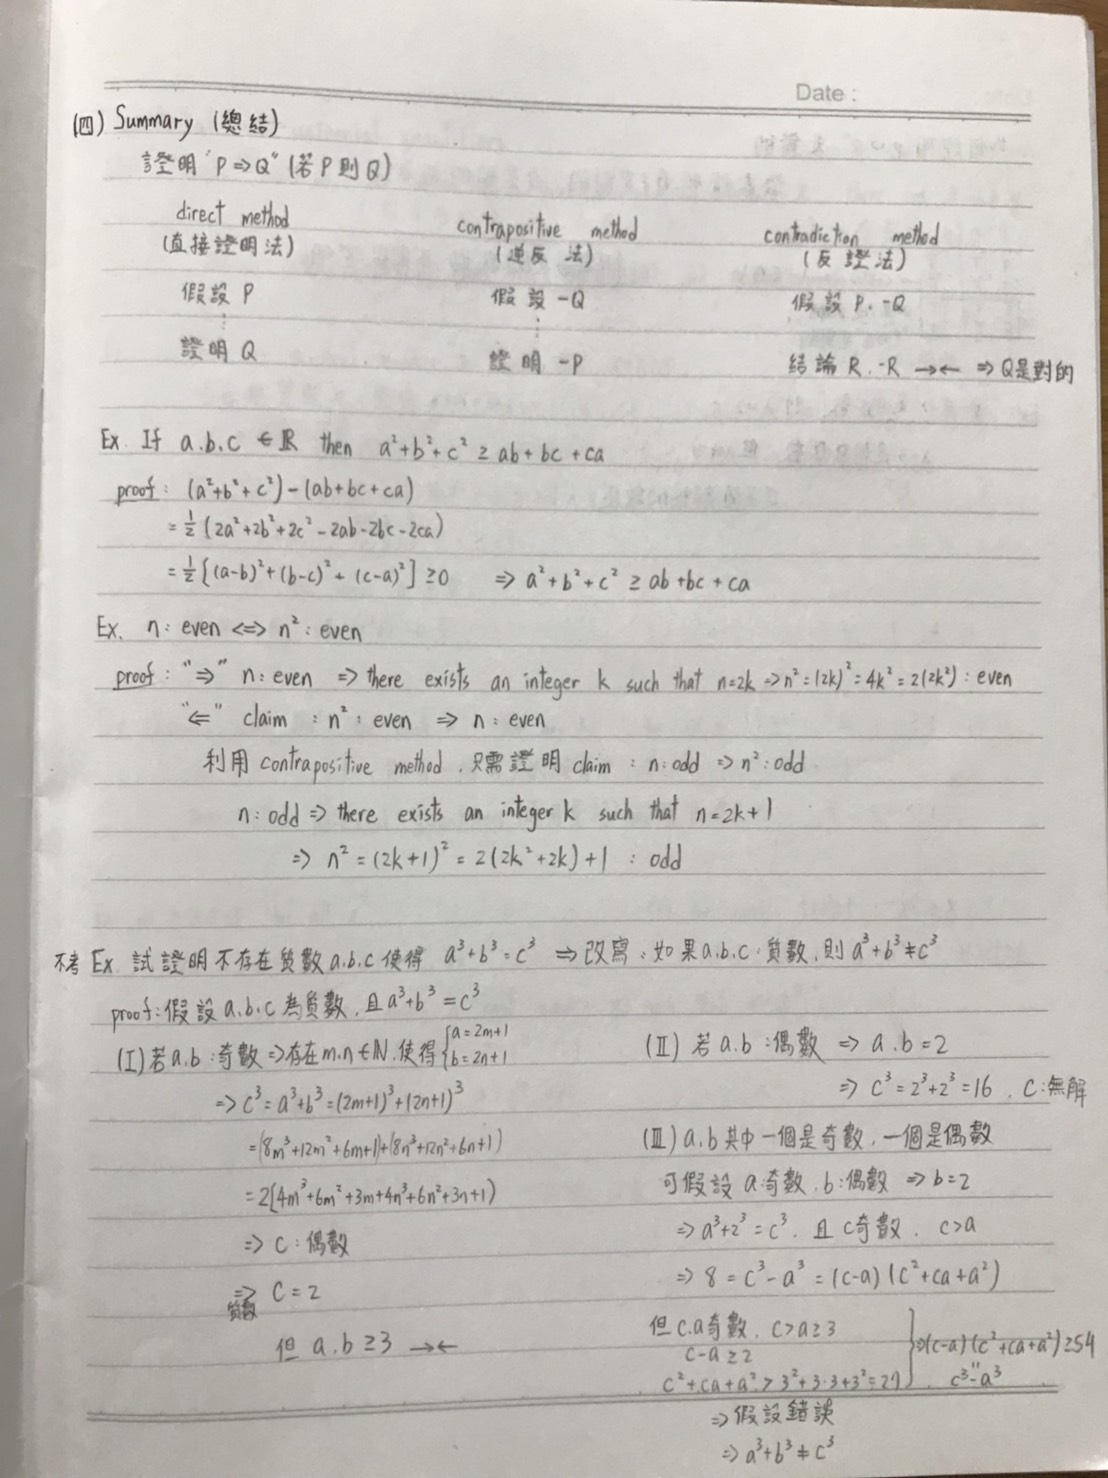 Date :
(四) Summary (總結)
證明 "P ⇒ Q" (若 P 則 Q)
direct method contrapositive method contradiction method
(直接證明法) (逆反法) (反證法)
假設 P 假設 -Q 假設 P. -Q
⋮ ⋮
證明 Q 證明 -P 結論 R. -R →← ⇒ Q是對的
Ex. If a.b.c ∈ ℝ then a²+b²+c² ≥ ab+bc+ca
proof : (a²+b²+c²)-(ab+bc+ca)
= ½ (2a²+2b²+2c²-2ab-2bc-2ca)
= ½ [(a-b)²+(b-c)²+(c-a)²] ≥0 ⇒ a²+b²+c² ≥ ab+bc+ca
Ex. n : even <=> n² : even
proof : "⇒" n : even ⇒ there exists an integer k such that n=2k ⇒ n²=(2k)²=4k²=2(2k²) : even
"⇐" claim : n² : even ⇒ n : even
利用 contrapositive method . 只需證明 claim : n : odd ⇒ n² : odd
n : odd ⇒ there exists an integer k such that n=2k+1
⇒ n² = (2k+1)² = 2(2k²+2k)+1 : odd
不考 Ex. 試證明不存在質數 a.b.c 使得 a³+b³=c³ ⇒ 改寫 : 如果 a.b.c : 質數, 則 a³+b³≠c³
proof : 假設 a.b.c 為質數, 且 a³+b³=c³
(I) 若 a.b : 奇數 ⇒ 存在 m.n ∈ ℕ, 使得 { a=2m+1
b=2n+1
⇒ c³=a³+b³=(2m+1)³+(2n+1)³
=(8m³+12m²+6m+1)+(8n³+12n²+6n+1)
=2(4m³+6m²+3m+4n³+6n²+3n+1)
⇒ c : 偶數
⇒ c=2
質數
但 a.b ≥3 →←
(II) 若 a.b : 偶數 ⇒ a.b=2
⇒ c³=2³+2³=16 . c : 無解
(III) a.b 其中一個是奇數, 一個是偶數
可假設 a : 奇數, b : 偶數 ⇒ b=2
⇒ a³+2³=c³. 且 c 奇數. c>a
⇒ 8=c³-a³=(c-a)(c²+ca+a²)
但 c.a 奇數. c>a≥3
c-a≥2
c²+ca+a²>3²+3·3+3²=27 } ⇒(c-a)(c²+ca+a²)≥54
" c³-a³
⇒ 假設錯誤
⇒ a³+b³≠c³